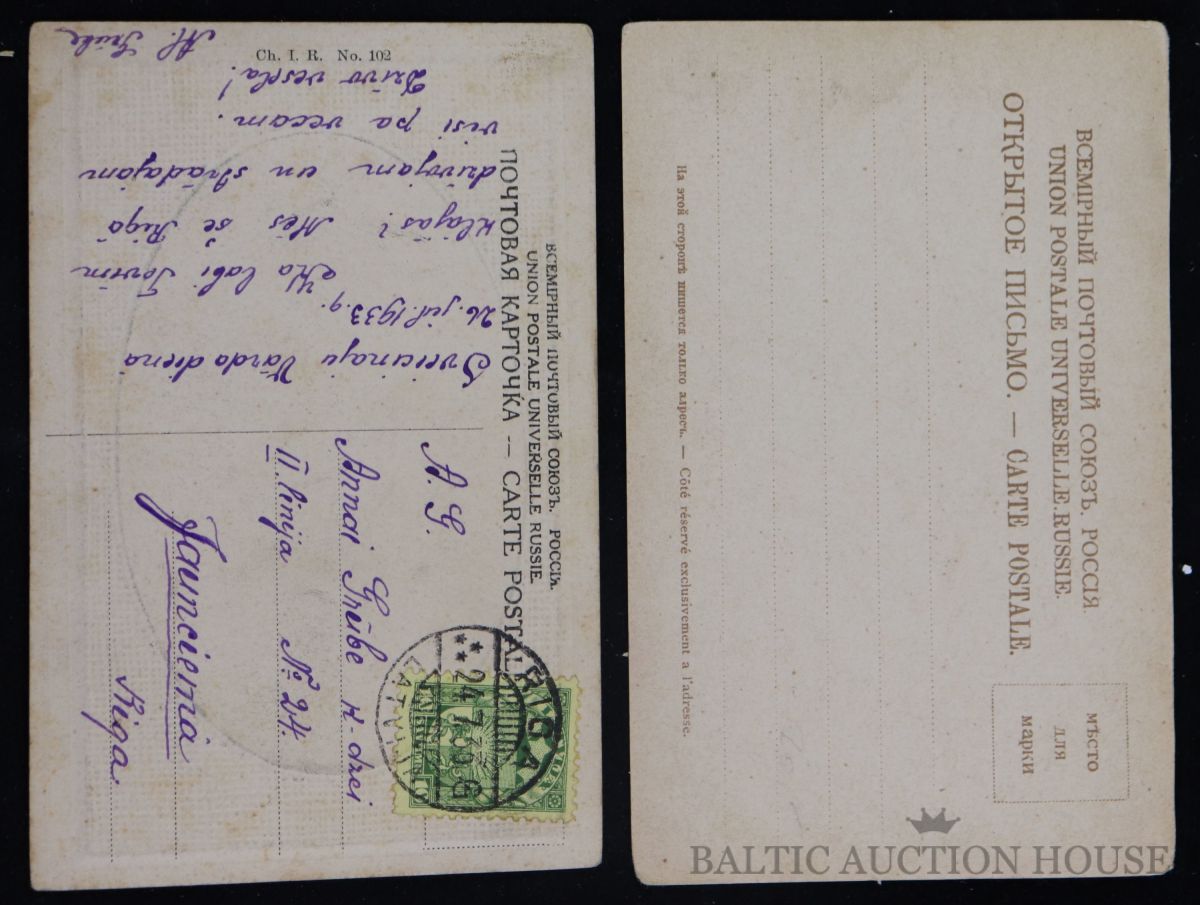 ВСЕМІРНЫЙ ПОЧТОВЫЙ СОЮЗЪ. РОССІЯ.
UNION POSTALE UNIVERSELLE. RUSSIE.
ПОЧТОВАЯ КАРТОЧКА — CARTE POSTALE
Ch. I. R. No. 102
Sveicinaju Vārda dienā
26. jūl. 1933. g.
Ka labi Tevim
klājas? Mēs še Rīgā
dzīvojam un strādajam
visi pa vecam.
Dzīvo vesela!
A. G.
Annai Grībe k-dzei
II. linija № 24.
Jaunciemā
Rīga.
RIGA
24.7.33.
LATVIJA
ВСЕМІРНЫЙ ПОЧТОВЫЙ СОЮЗЪ. РОССІЯ
UNION POSTALE UNIVERSELLE. RUSSIE.
ОТКРЫТОЕ ПИСЬМО. — CARTE POSTALE.
мѣсто
для
марки
На этой сторонѣ пишется только адресъ. — Côté réservé exclusivement a l'adresse.
BALTIC AUCTION HOUSE